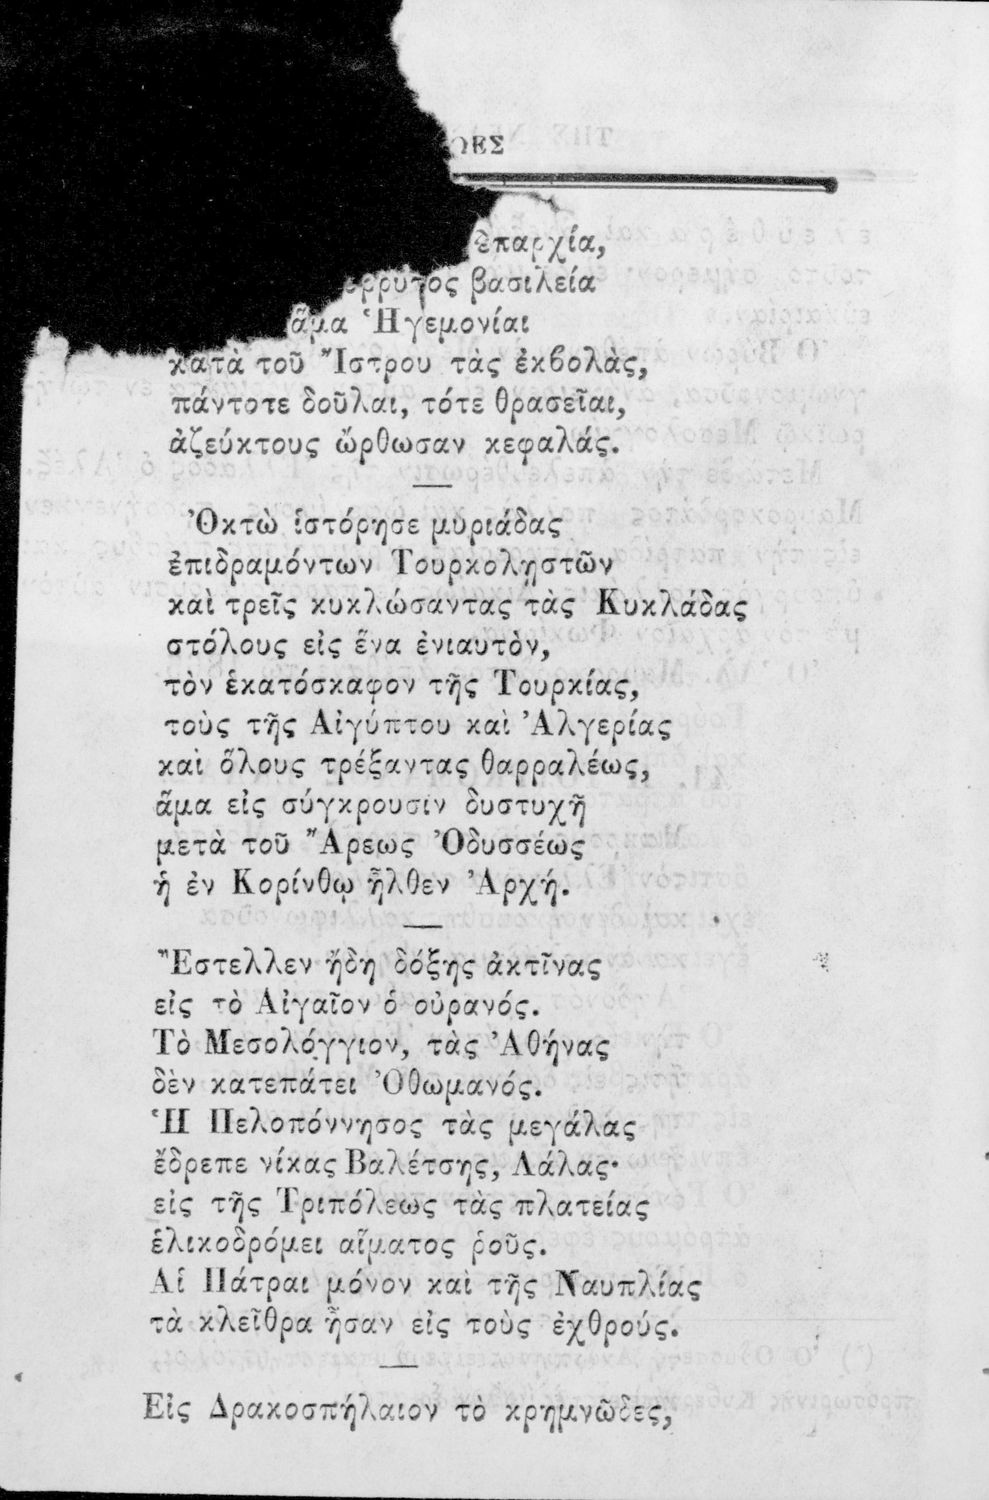 ἐπαρχία,
βασιλεία
ἅμα Ἡγεμονίαι
κατὰ τοῦ Ἴστρου τὰς ἐκβολὰς,
πάντοτε δοῦλαι, τότε θρασεῖαι,
ἀζεύκτους ὤρθωσαν κεφαλάς.
Ὀκτὼ ἱστόρησε μυριάδας
ἐπιδραμόντων Τουρκολῃστῶν
καὶ τρεῖς κυκλώσαντας τὰς Κυκλάδας
στόλους εἰς ἕνα ἐνιαυτὸν,
τὸν ἑκατόσκαφον τῆς Τουρκίας,
τοὺς τῆς Αἰγύπτου καὶ Ἀλγερίας
καὶ ὅλους τρέξαντας θαρραλέως,
ἅμα εἰς σύγκρουσιν δυστυχῆ
μετὰ τοῦ Ἄρεως Ὀδυσσέως
ἡ ἐν Κορίνθῳ ἦλθεν Ἀρχή.
Ἔστελλεν ἤδη δόξης ἀκτῖνας
εἰς τὸ Αἰγαῖον ὁ οὐρανός.
Τὸ Μεσολόγγιον, τὰς Ἀθήνας
δὲν κατεπάτει Ὀθωμανός.
Ἡ Πελοπόννησος τὰς μεγάλας
ἔδρεπε νίκας Βαλέτσης, Λάλας·
εἰς τῆς Τριπόλεως τὰς πλατείας
ἑλικοδρόμει αἵματος ῥοῦς.
Αἱ Πάτραι μόνον καὶ τῆς Ναυπλίας
τὰ κλεῖθρα ἦσαν εἰς τοὺς ἐχθρούς.
Εἰς Δρακοσπήλαιον τὸ κρημνῶδες,